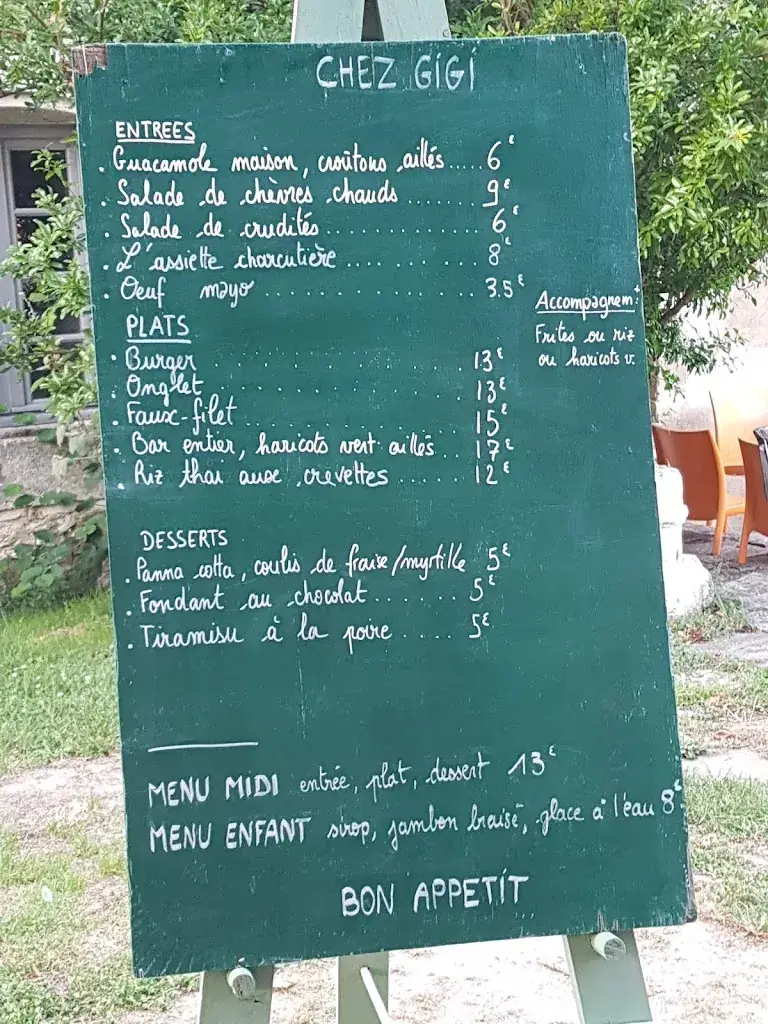 CHEZ GIGI
ENTREES
. Guacamole maison, croûtons aillés..... 6€
. Salade de chèvres chauds ....... 9€
. Salade de crudités ............ 6€
. L'assiette charcutière .......... 8€
. Oeuf mayo ................ 3.5€
Accompagnemt:
Frites ou riz
ou haricots v.
PLATS
. Burger ............ 13€
. Onglet ............ 13€
. Faux-filet ............ 15€
. Bar entier, haricots vert aillés .. 17€
. Riz thai aux crevettes ..... 12€
DESSERTS
. Panna cotta, coulis de fraise/myrtille 5€
. Fondant au chocolat ....... 5€
. Tiramisu à la poire ..... 5€
MENU MIDI entrée, plat, dessert 13€
MENU ENFANT sirop, jambon braisé, glace à l'eau 8€
BON APPETIT